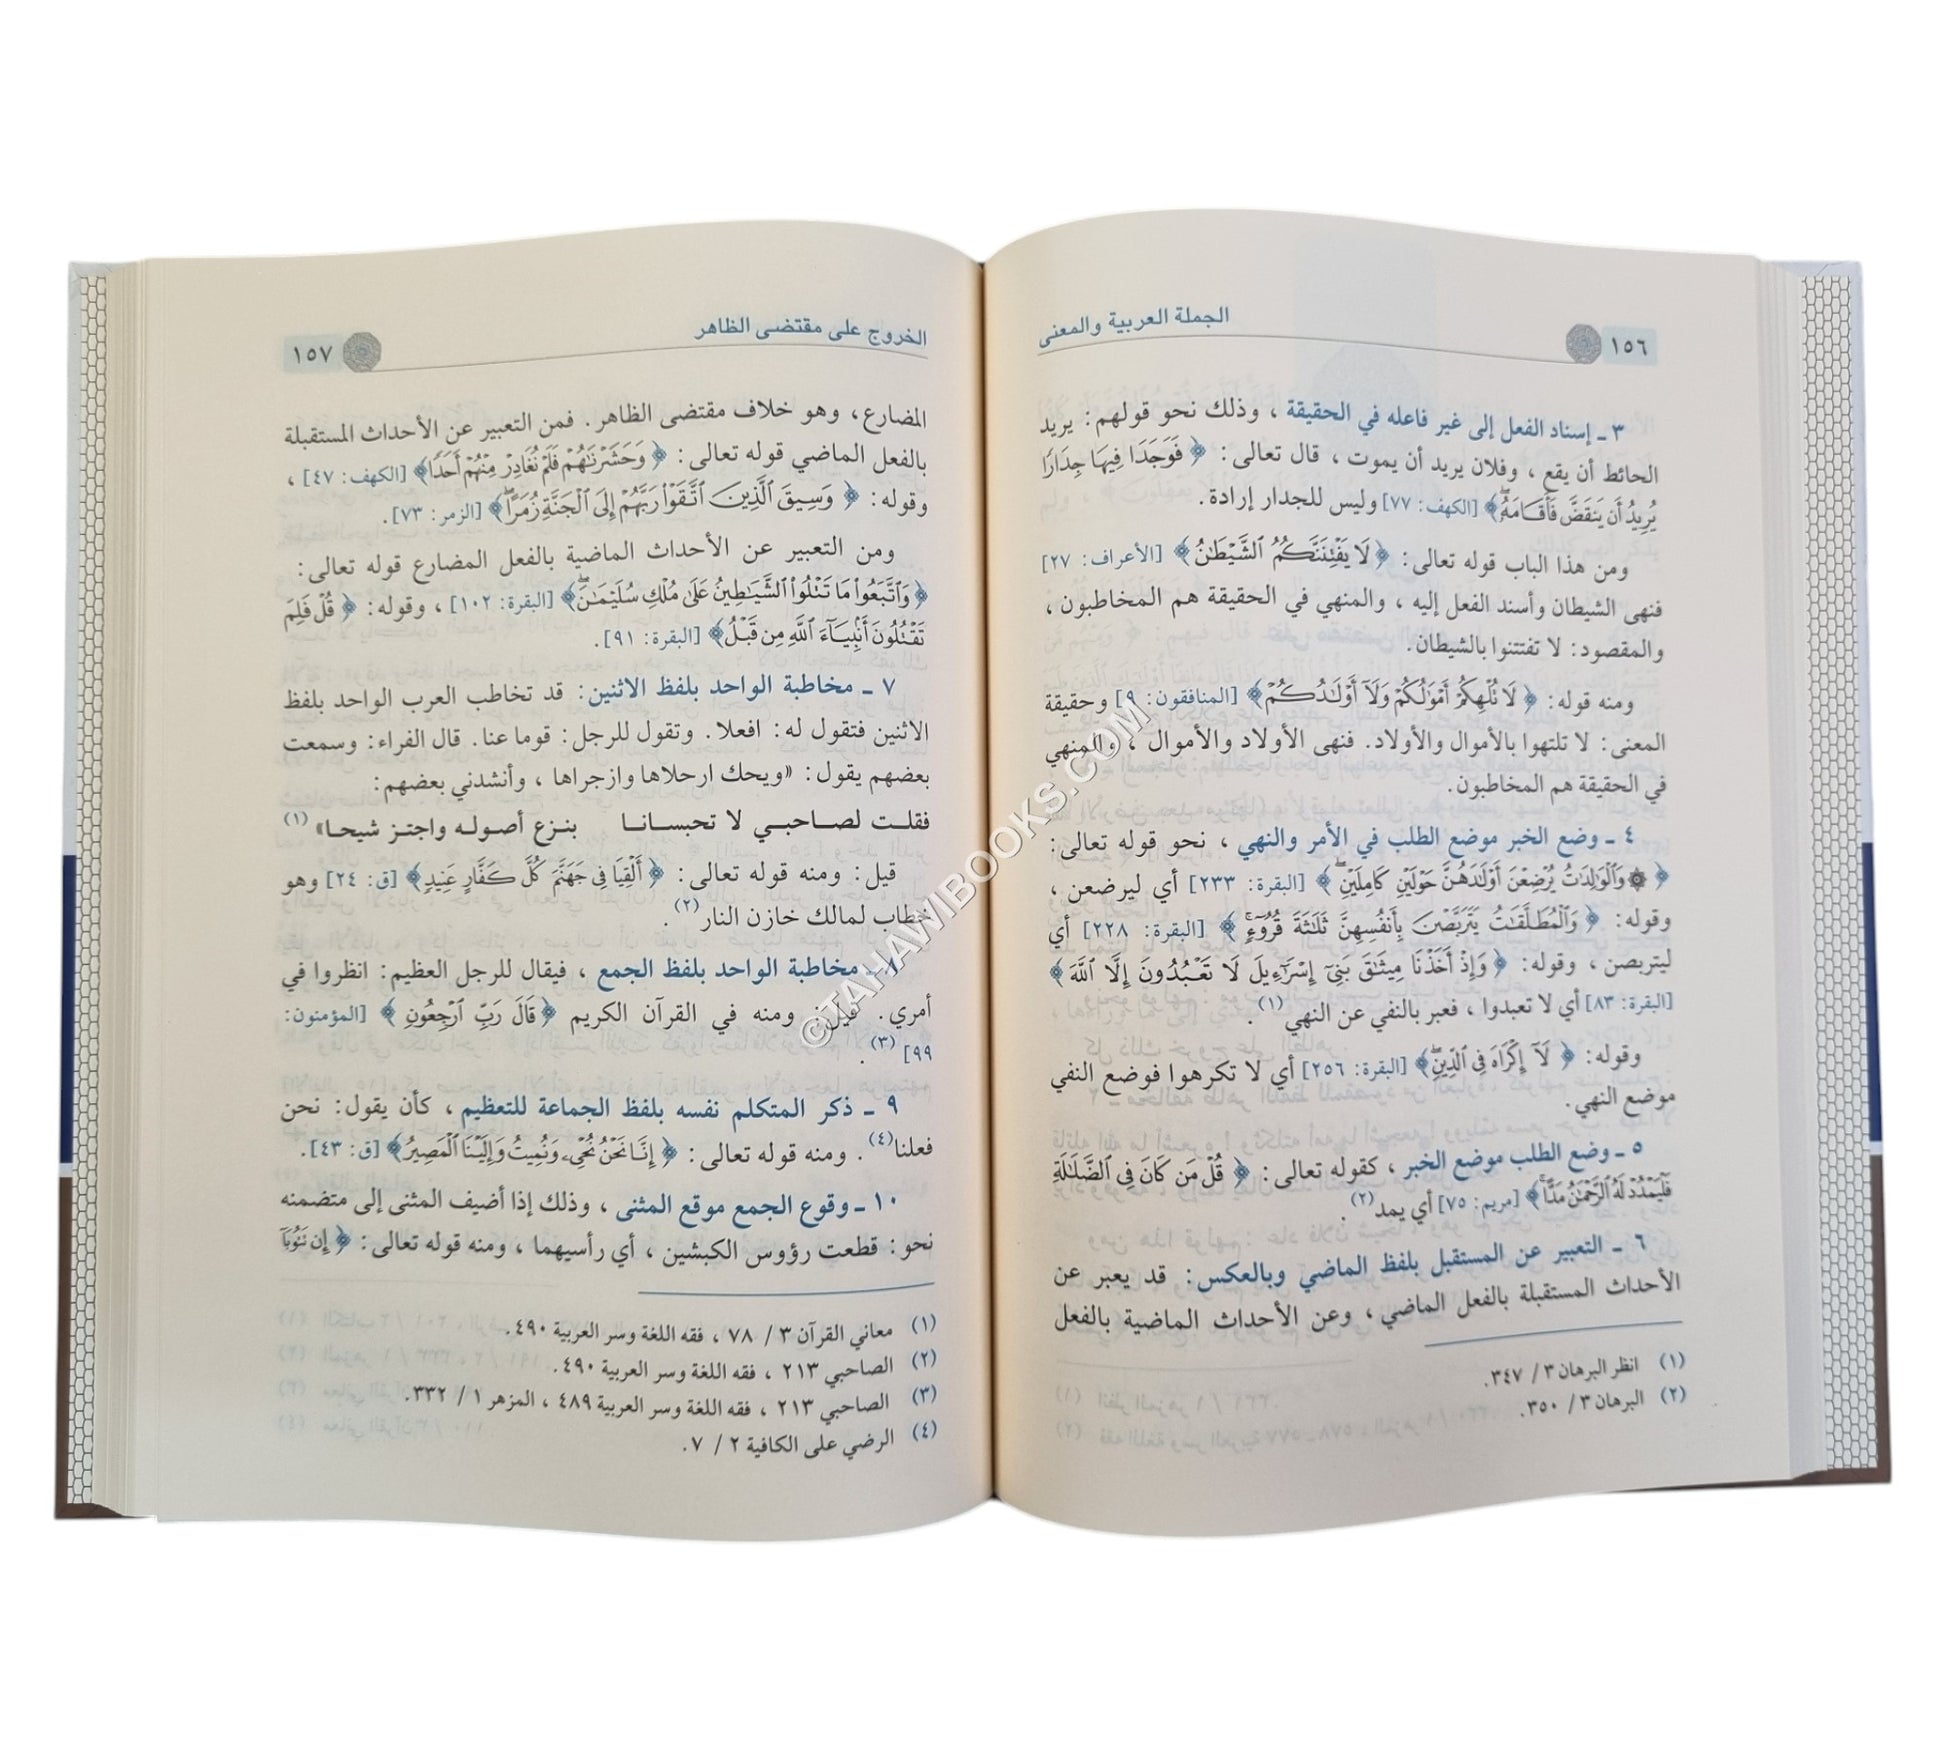 الجملة العربية والمعنى
١٥٦
٣ ـ إسناد الفعل إلى غير فاعله في الحقيقة ، وذلك نحو قولهم: يريد
الحائط أن يقع ، وفلان يريد أن يموت ، قال تعالى: ﴿ فَوَجَدَا فِيهَا جِدَارًا
يُرِيدُ أَن يَنقَضَّ فَأَقَامَهُۥ﴾ [الكهف: ٧٧] وليس للجدار إرادة.
ومن هذا الباب قوله تعالى: ﴿ لَا يَفْتِنَنَّكُمُ ٱلشَّيْطَٰنُ ﴾ [الأعراف: ٢٧]
فنهى الشيطان وأسند الفعل إليه ، والمنهي في الحقيقة هم المخاطبون ،
والمقصود: لا تفتتنوا بالشيطان.
ومنه قوله: ﴿ لَا تُلْهِكُمْ أَمْوَٰلُكُمْ وَلَآ أَوْلَٰدُكُمْ ﴾ [المنافقون: ٩] وحقيقة
المعنى: لا تلتهوا بالأموال والأولاد. فنهى الأولاد والأموال ، والمنهي
في الحقيقة هم المخاطبون.
٤ ـ وضع الخبر موضع الطلب في الأمر والنهي ، نحو قوله تعالى:
﴿ ۞ وَٱلْوَٰلِدَٰتُ يُرْضِعْنَ أَوْلَٰدَهُنَّ حَوْلَيْنِ كَامِلَيْنِ ﴾ [البقرة: ٢٣٣] أي ليرضعن ،
وقوله: ﴿ وَٱلْمُطَلَّقَٰتُ يَتَرَبَّصْنَ بِأَنفُسِهِنَّ ثَلَٰثَةَ قُرُوٓءٍ ﴾ [البقرة: ٢٢٨] أي
ليتربصن ، وقوله: ﴿ وَإِذْ أَخَذْنَا مِيثَٰقَ بَنِىٓ إِسْرَٰٓءِيلَ لَا تَعْبُدُونَ إِلَّا ٱللَّهَ ﴾
[البقرة: ٨٣] أي لا تعبدوا ، فعبر بالنفي عن النهي (١) .
وقوله: ﴿ لَآ إِكْرَاهَ فِى ٱلدِّينِ ﴾ [البقرة: ٢٥٦] أي لا تكرهوا فوضع النفي
موضع النهي.
٥ ـ وضع الطلب موضع الخبر ، كقوله تعالى: ﴿ قُلْ مَن كَانَ فِى ٱلضَّلَٰلَةِ
فَلْيَمْدُدْ لَهُ ٱلرَّحْمَٰنُ مَدًّا ﴾ [مريم: ٧٥] أي يمد (٢) .
٦ ـ التعبير عن المستقبل بلفظ الماضي وبالعكس: قد يعبر عن
الأحداث المستقبلة بالفعل الماضي ، وعن الأحداث الماضية بالفعل
(١) انظر البرهان ٣ / ٣٤٧.
(٢) البرهان ٣ / ٣٥٠.
الخروج على مقتضى الظاهر
١٥٧
المضارع، وهو خلاف مقتضى الظاهر. فمن التعبير عن الأحداث المستقبلة
بالفعل الماضي قوله تعالى: ﴿ وَحَشَرْنَٰهُمْ فَلَمْ نُغَادِرْ مِنْهُمْ أَحَدًا ﴾ [الكهف: ٤٧] ،
وقوله: ﴿ وَسِيقَ ٱلَّذِينَ ٱتَّقَوْا۟ رَبَّهُمْ إِلَى ٱلْجَنَّةِ زُمَرًا ﴾ [الزمر: ٧٣].
ومن التعبير عن الأحداث الماضية بالفعل المضارع قوله تعالى:
﴿ وَٱتَّبَعُوا۟ مَا تَتْلُوا۟ ٱلشَّيَٰطِينُ عَلَىٰ مُلْكِ سُلَيْمَٰنَ ﴾ [البقرة: ١٠٢] ، وقوله: ﴿ قُلْ فَلِمَ
تَقْتُلُونَ أَنۢبِيَآءَ ٱللَّهِ مِن قَبْلُ ﴾ [البقرة: ٩١].
٧ ـ مخاطبة الواحد بلفظ الاثنين: قد تخاطب العرب الواحد بلفظ
الاثنين فتقول له: افعلا. وتقول للرجل: قوما عنا. قال الفراء: وسمعت
بعضهم يقول: «ويحك ارحلاها وازجراها ، وأنشدني بعضهم:
فقلت لصاحبي لا تحبسانا    بنزع أصوله واجتز شيحا» (١)
قيل: ومنه قوله تعالى: ﴿ أَلْقِيَا فِى جَهَنَّمَ كُلَّ كَفَّارٍ عَنِيدٍ ﴾ [ق: ٢٤] وهو
خطاب لمالك خازن النار (٢) .
٨ ـ مخاطبة الواحد بلفظ الجمع ، فيقال للرجل العظيم: انظروا في
أمري. قيل: ومنه في القرآن الكريم ﴿ قَالَ رَبِّ ٱرْجِعُونِ ﴾ [المؤمنون:
٩٩] (٣) .
٩ ـ ذكر المتكلم نفسه بلفظ الجماعة للتعظيم ، كأن يقول: نحن
فعلنا (٤) . ومنه قوله تعالى: ﴿ إِنَّا نَحْنُ نُحْىِۦ وَنُمِيتُ وَإِلَيْنَا ٱلْمَصِيرُ ﴾ [ق: ٤٣].
١٠ ـ وقوع الجمع موقع المثنى ، وذلك إذا أضيف المثنى إلى متضمنه
نحو: قطعت رؤوس الكبشين ، أي رأسيهما ، ومنه قوله تعالى: ﴿ إِن تَتُوبَآ
(١) معاني القرآن ٣ / ٧٨ ، فقه اللغة وسر العربية ٤٩٠.
(٢) الصاحبي ٢١٣ ، فقه اللغة وسر العربية ٤٩٠.
(٣) الصاحبي ٢١٣ ، فقه اللغة وسر العربية ٤٨٩ ، المزهر ١ / ٣٣٢.
(٤) الرضي على الكافية ٢ / ٧.
©TAHAWIBOOKS.COM